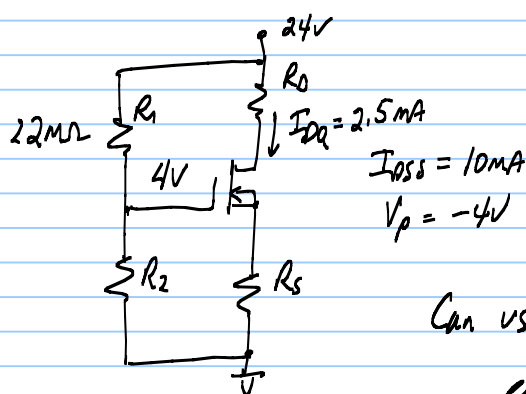 24V
R1
RD
22MΩ
IDQ = 2.5mA
4V
IDSS = 10mA
Vp = -4V
R2
RS
Can us